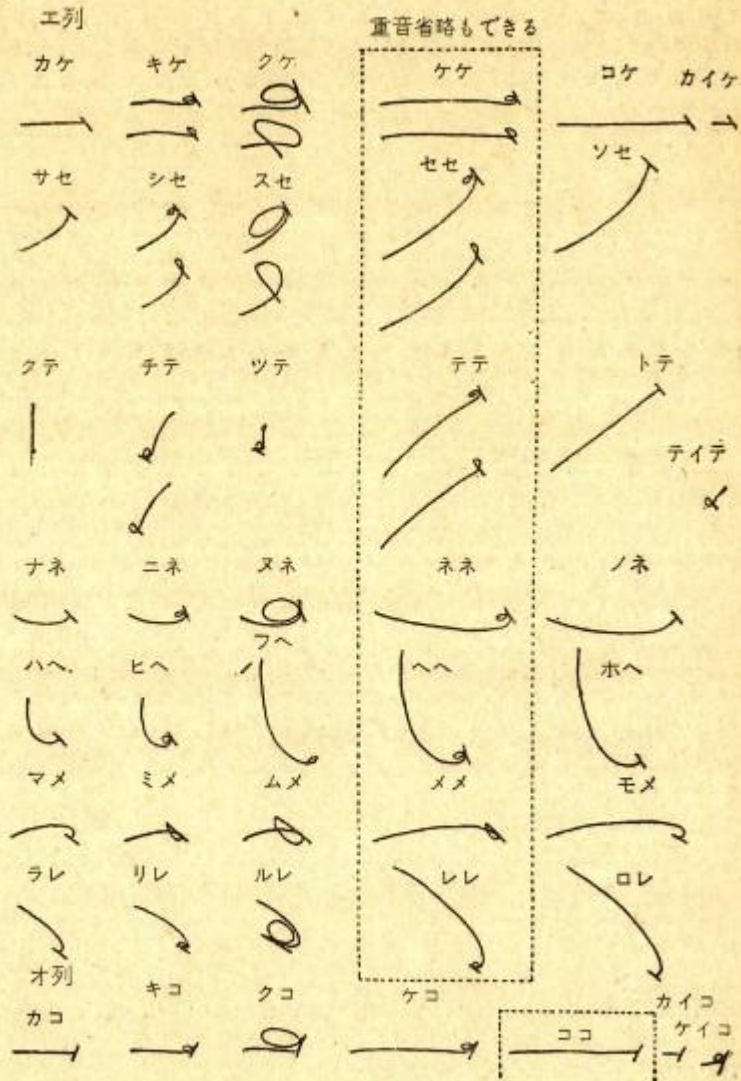 エ列
重音省略もできる
カケ キケ クケ ケケ コケ カイケ
サセ シセ スセ セセ ソセ
クテ チテ ツテ テテ トテ
テイテ
ナネ ニネ ヌネ ネネ ノネ
ハヘ ヒヘ フヘ ヘヘ ホヘ
マメ ミメ ムメ メメ モメ
ラレ リレ ルレ レレ ロレ
オ列
カコ キコ クコ ケコ ココ カイコ
ケイコ